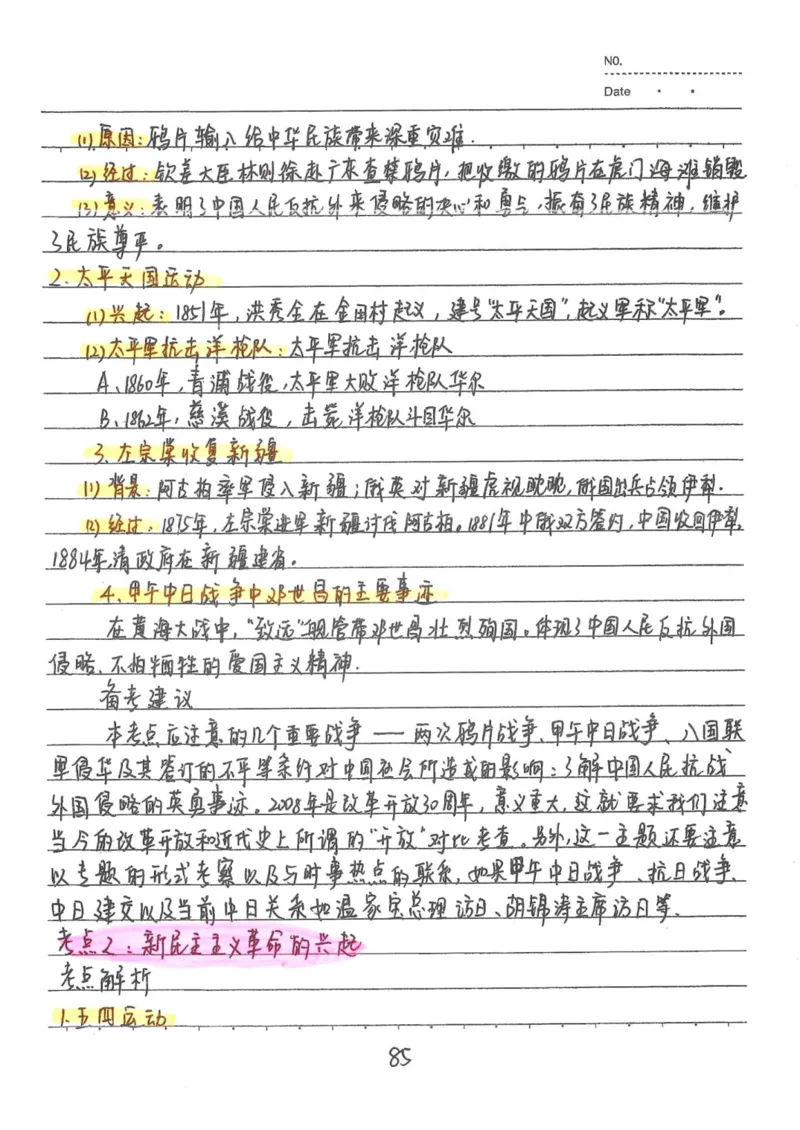 NO.
Date
(1)原因:鸦片输入给中华民族带来深重灾难.
(2)经过:钦差大臣林则徐赴广东查禁鸦片,把收缴的鸦片在虎门海滩销毁
(3)意义:表明了中国人民反抗外来侵略的决心和勇气,振奋了民族精神,维护
了民族尊严。
2.太平天国运动
(1)兴起:1851年,洪秀全在金田村起义,建号"太平天国",起义军称"太平军"。
(2)太平军抗击洋枪队:太平军抗击洋枪队
A、1860年,青浦战役,太平军大败洋枪队华尔
B、1862年,慈溪战役,击毙洋枪队斗目华尔
3.左宗棠收复新疆
(1)背景:阿古柏率军侵入新疆;俄英对新疆虎视眈眈,俄国出兵占领伊犁.
(2)经过:1875年,左宗棠进军新疆讨伐阿古柏。1881年中俄双方签约,中国收回伊犁,
1884年,清政府在新疆建省。
4、甲午中日战争中邓世昌的主要事迹
在黄海大战中,"致远"舰管带邓世昌壮烈殉国。体现了中国人民反抗外国
侵略、不怕牺牲的爱国主义精神.
备考建议
本考点应注意的几个重要战争——两次鸦片战争、甲午中日战争、八国联
军侵华及其签订的不平等条约对中国社会所造成的影响:了解中国人民抗战
外国侵略的英勇事迹。2008年是改革开放30周年,意义重大,这就要求我们注意
当今的改革开放和近代史上所谓的"开放"对比考查。另外,这一主题还要注意
以专题的形式考察以及与时事热点的联系,如果甲午中日战争、抗日战争、
中日建交以及当前中日关系如温家宝总理访日、胡锦涛主席访日等、
考点2:新民主主义革命的兴起
考点解析
1.五四运动
85